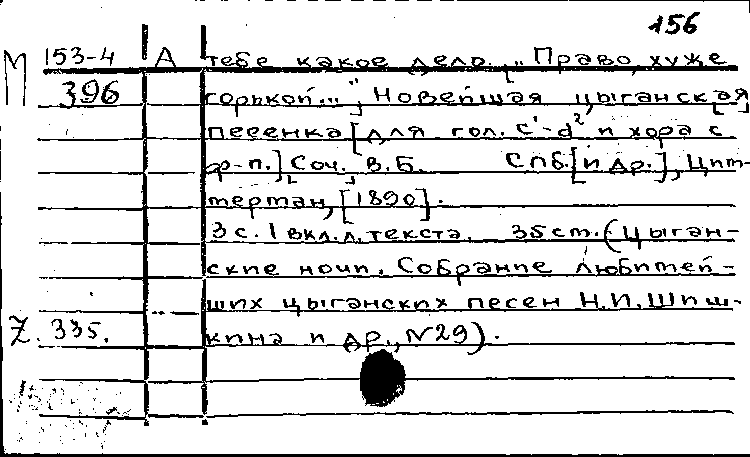 156
М 153-4 А тебе какое дело. „Право, хуже
396 горькой...", Новейшая цыганская
песенка [для гол. c¹-d² и хора с
ф-п.], Соч. В.Б. Спб. [и др.], Цим-
мерман, [1890].
3 с. 1 вкл. л. текста. 35 см. (Цыган-
ские ночи. Собрание любитей-
ших цыганских песен Н.И. Шиш-
Z. 335. кина и др., N29).